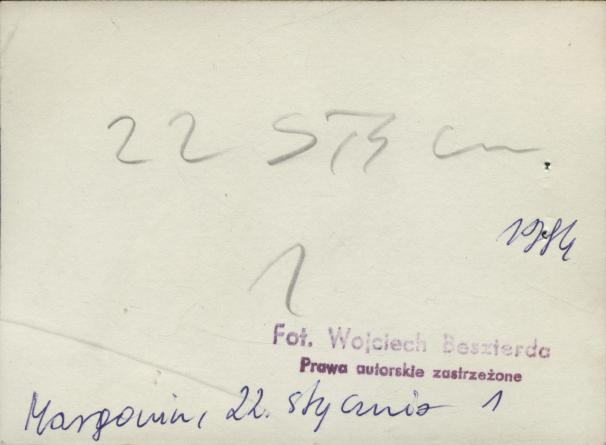 22 STY
1984
1
Fot. Wojciech Beszterda
Prawa autorskie zastrzeżone
Margonin, 22. stycznia 1